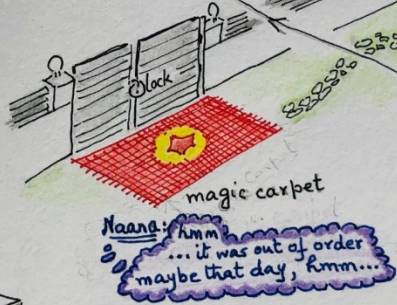 lock
magic carpet
Naana: hmm
... it was out of order
maybe that day, hmm...